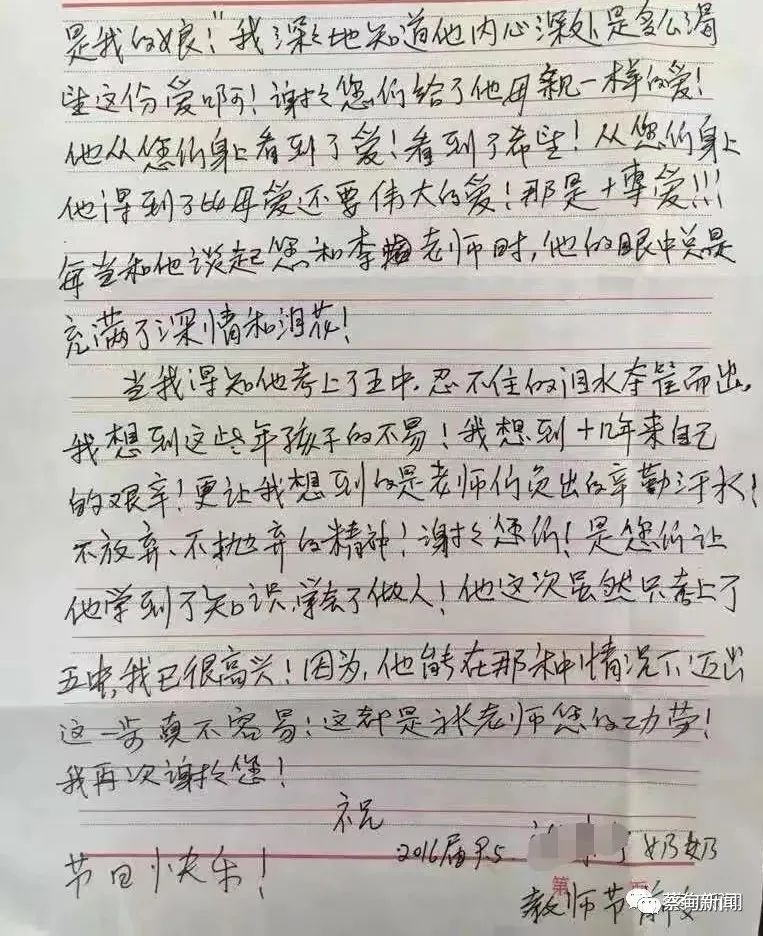 是我的娘！”我深深地知道他内心深处是多么渴
望这份爱啊！谢谢您们给了他母亲一样的爱！
他从您们身上看到了爱！看到了希望！从您们身上
他得到了比母爱还要伟大的爱！那是十尊爱！！！
每当和他谈起您和李 老师时，他的眼中总是
充满了深情和泪花！
当我得知他考上了五中，忍不住的泪水夺眶而出。
我想到这些年孩子的不易！我想到十几年来自己
的艰辛！更让我想到的是老师们负出的辛勤汗水！
不放弃、不抛弃的精神！谢谢您们！是您们让
他学到了知识，学会了做人！他这次虽然只考上了
五中，我已很高兴！因为，他能在那种情况下迈出
这一步真不容易！这都是张老师您的功劳！
我再次谢谢您！
祝
2016届 奶奶
节日快乐！
教师节前夜
第
蔡甸新闻